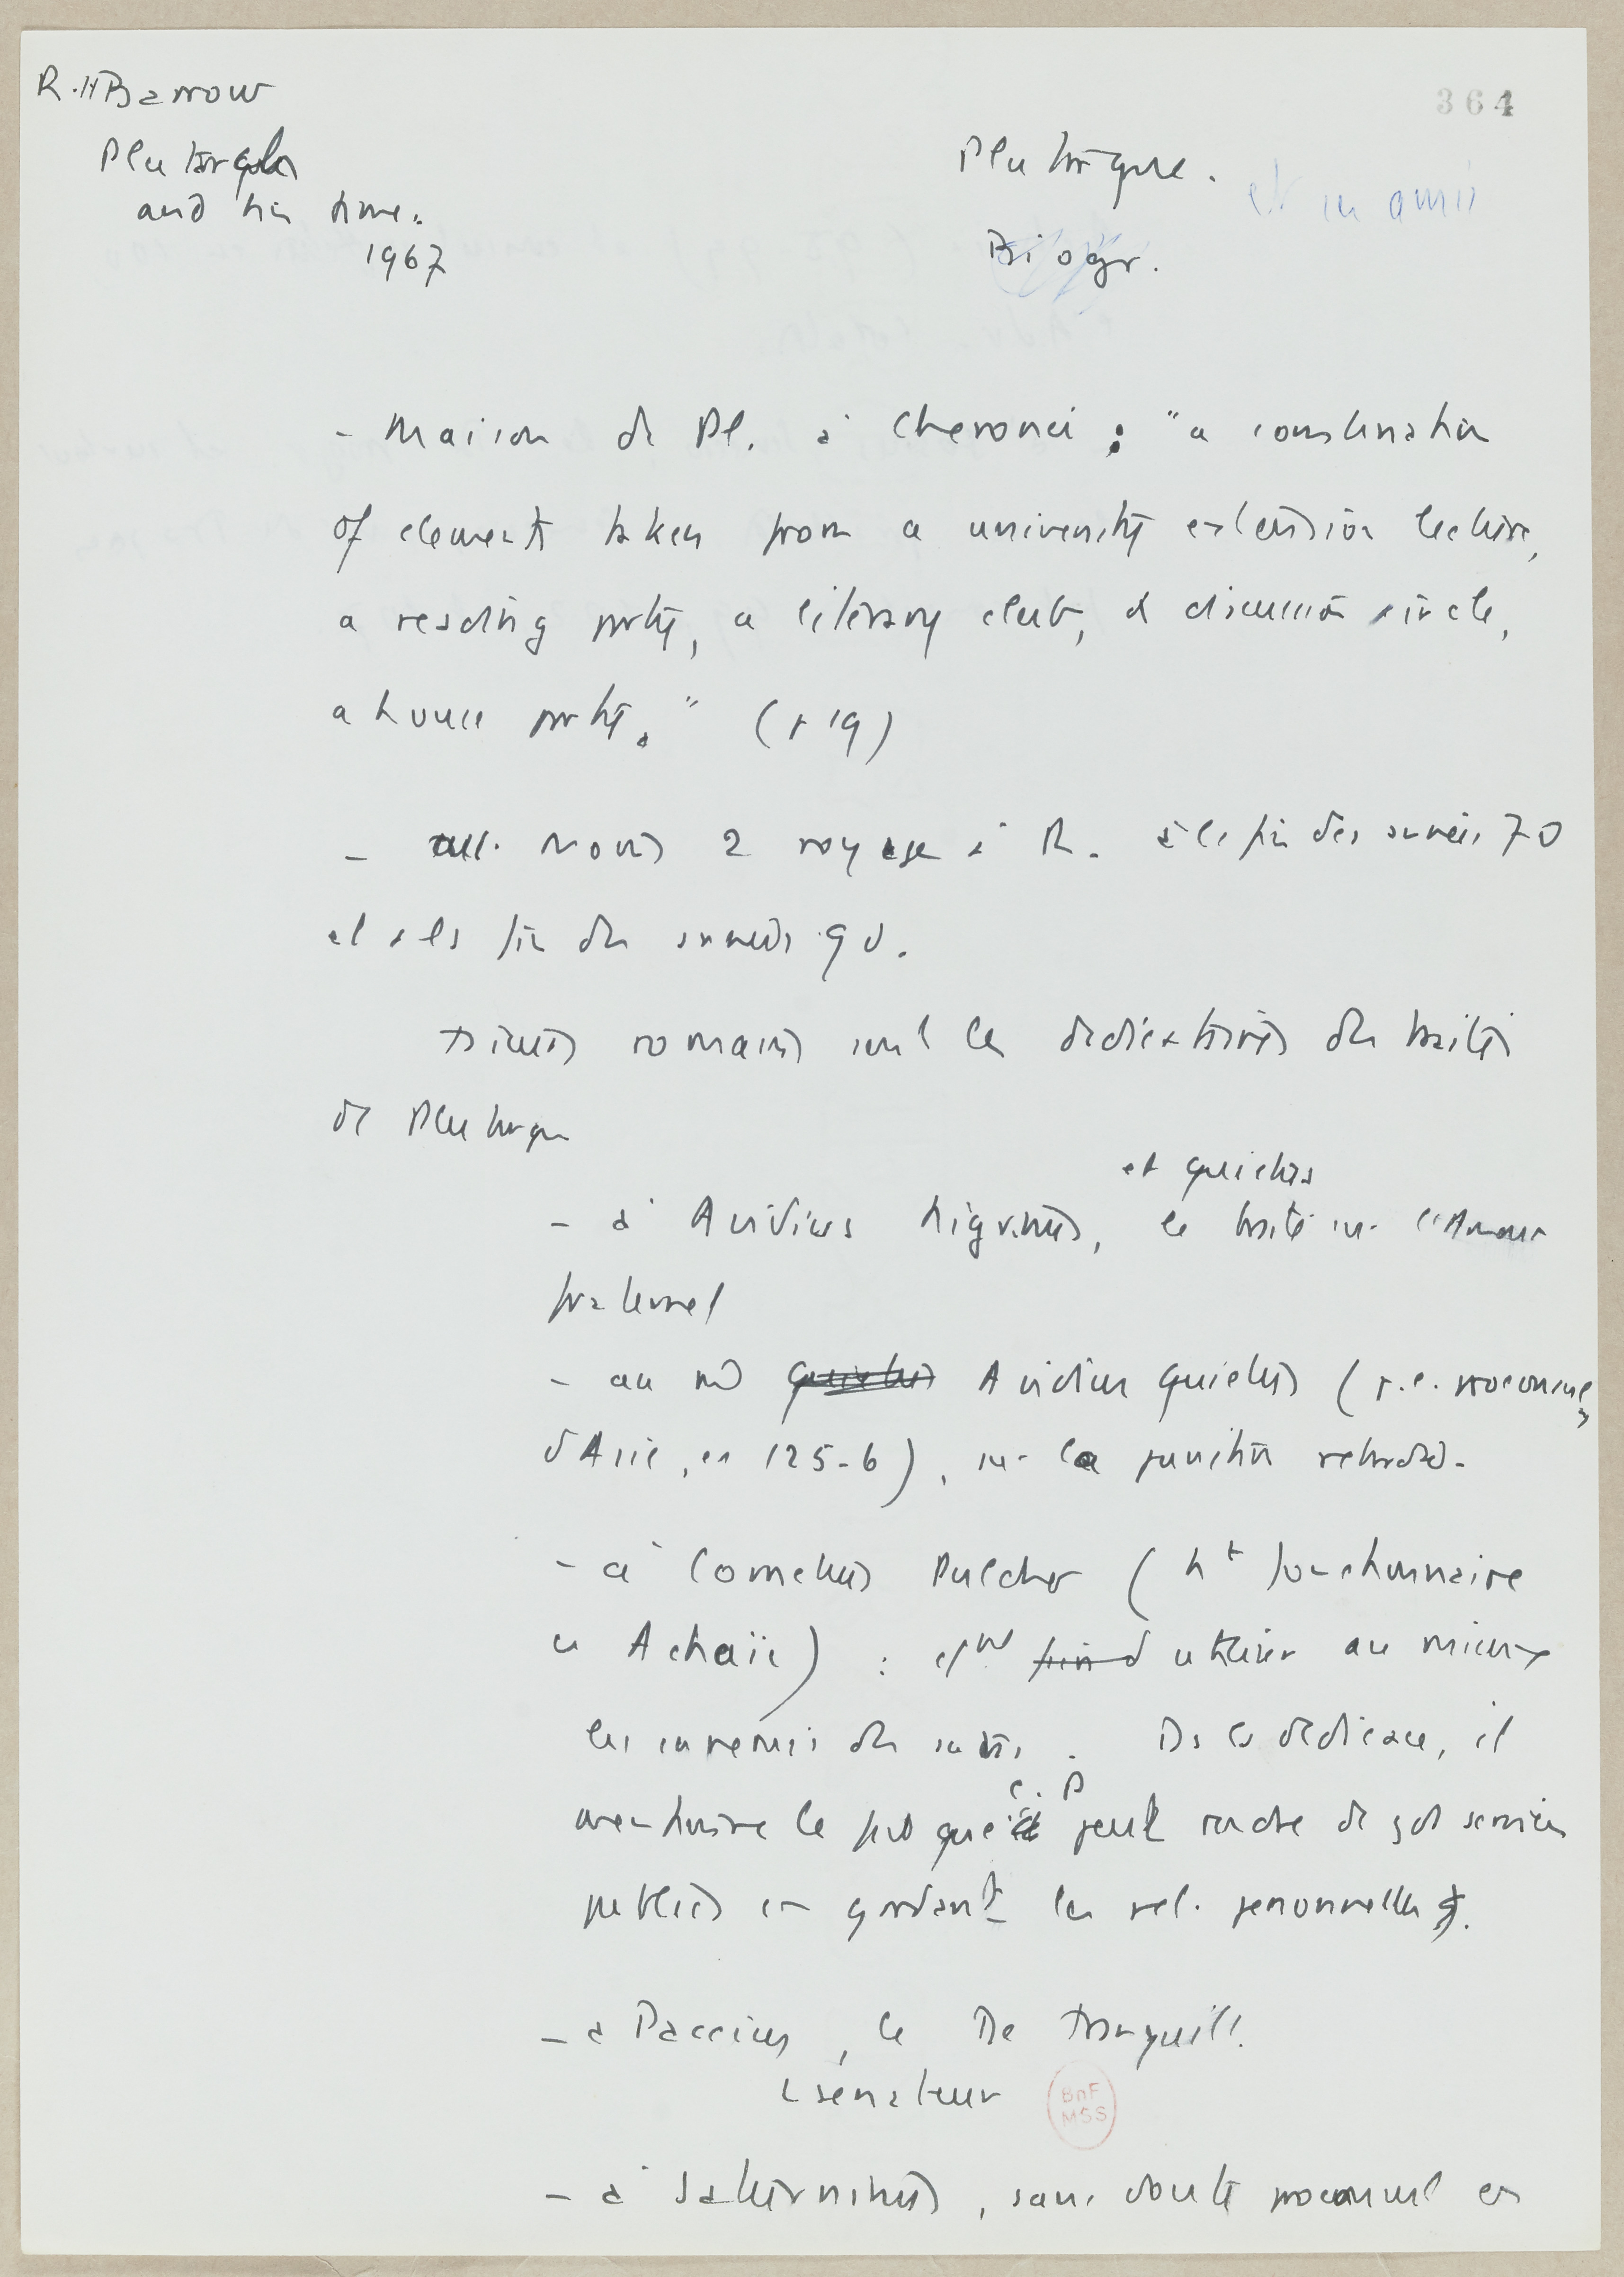 R.H Barrow
Plutarch
and his time.
1967
364
Plutarque.
et ses amis
Biogr.
- Maison de Pl. à Cheronée : "a combination
of elements taken from a university extension lecture,
a reading party, a literary club, a discussion circle,
a house party." (p 19)
- au moins 2 voyages à R. à la fin des années 70
et à la fin des années 90.
romains sont les dédicataires des traités
de Plutarque
et Quietus
- à Avidius Nigrinus, le traité sur l'Amour
fraternel
- au m̂ Quietus Avidius Quietus (p.e. proconsul
d'Asie, en 125-6), sur la punition retardée.
- à Cornelius Pulcher (ht fonctionnaire
en Achaïe) : utiliser au mieux
les ennemis. Ds la dédicace, il
C. P
mentionne le fait que peut rendre de gds services
publics en gardant les rel. personnelles.
- à Paccius, le De tranquill.
sénateur
BnF
MSS
- à Saturninus, sans doute proconsul en